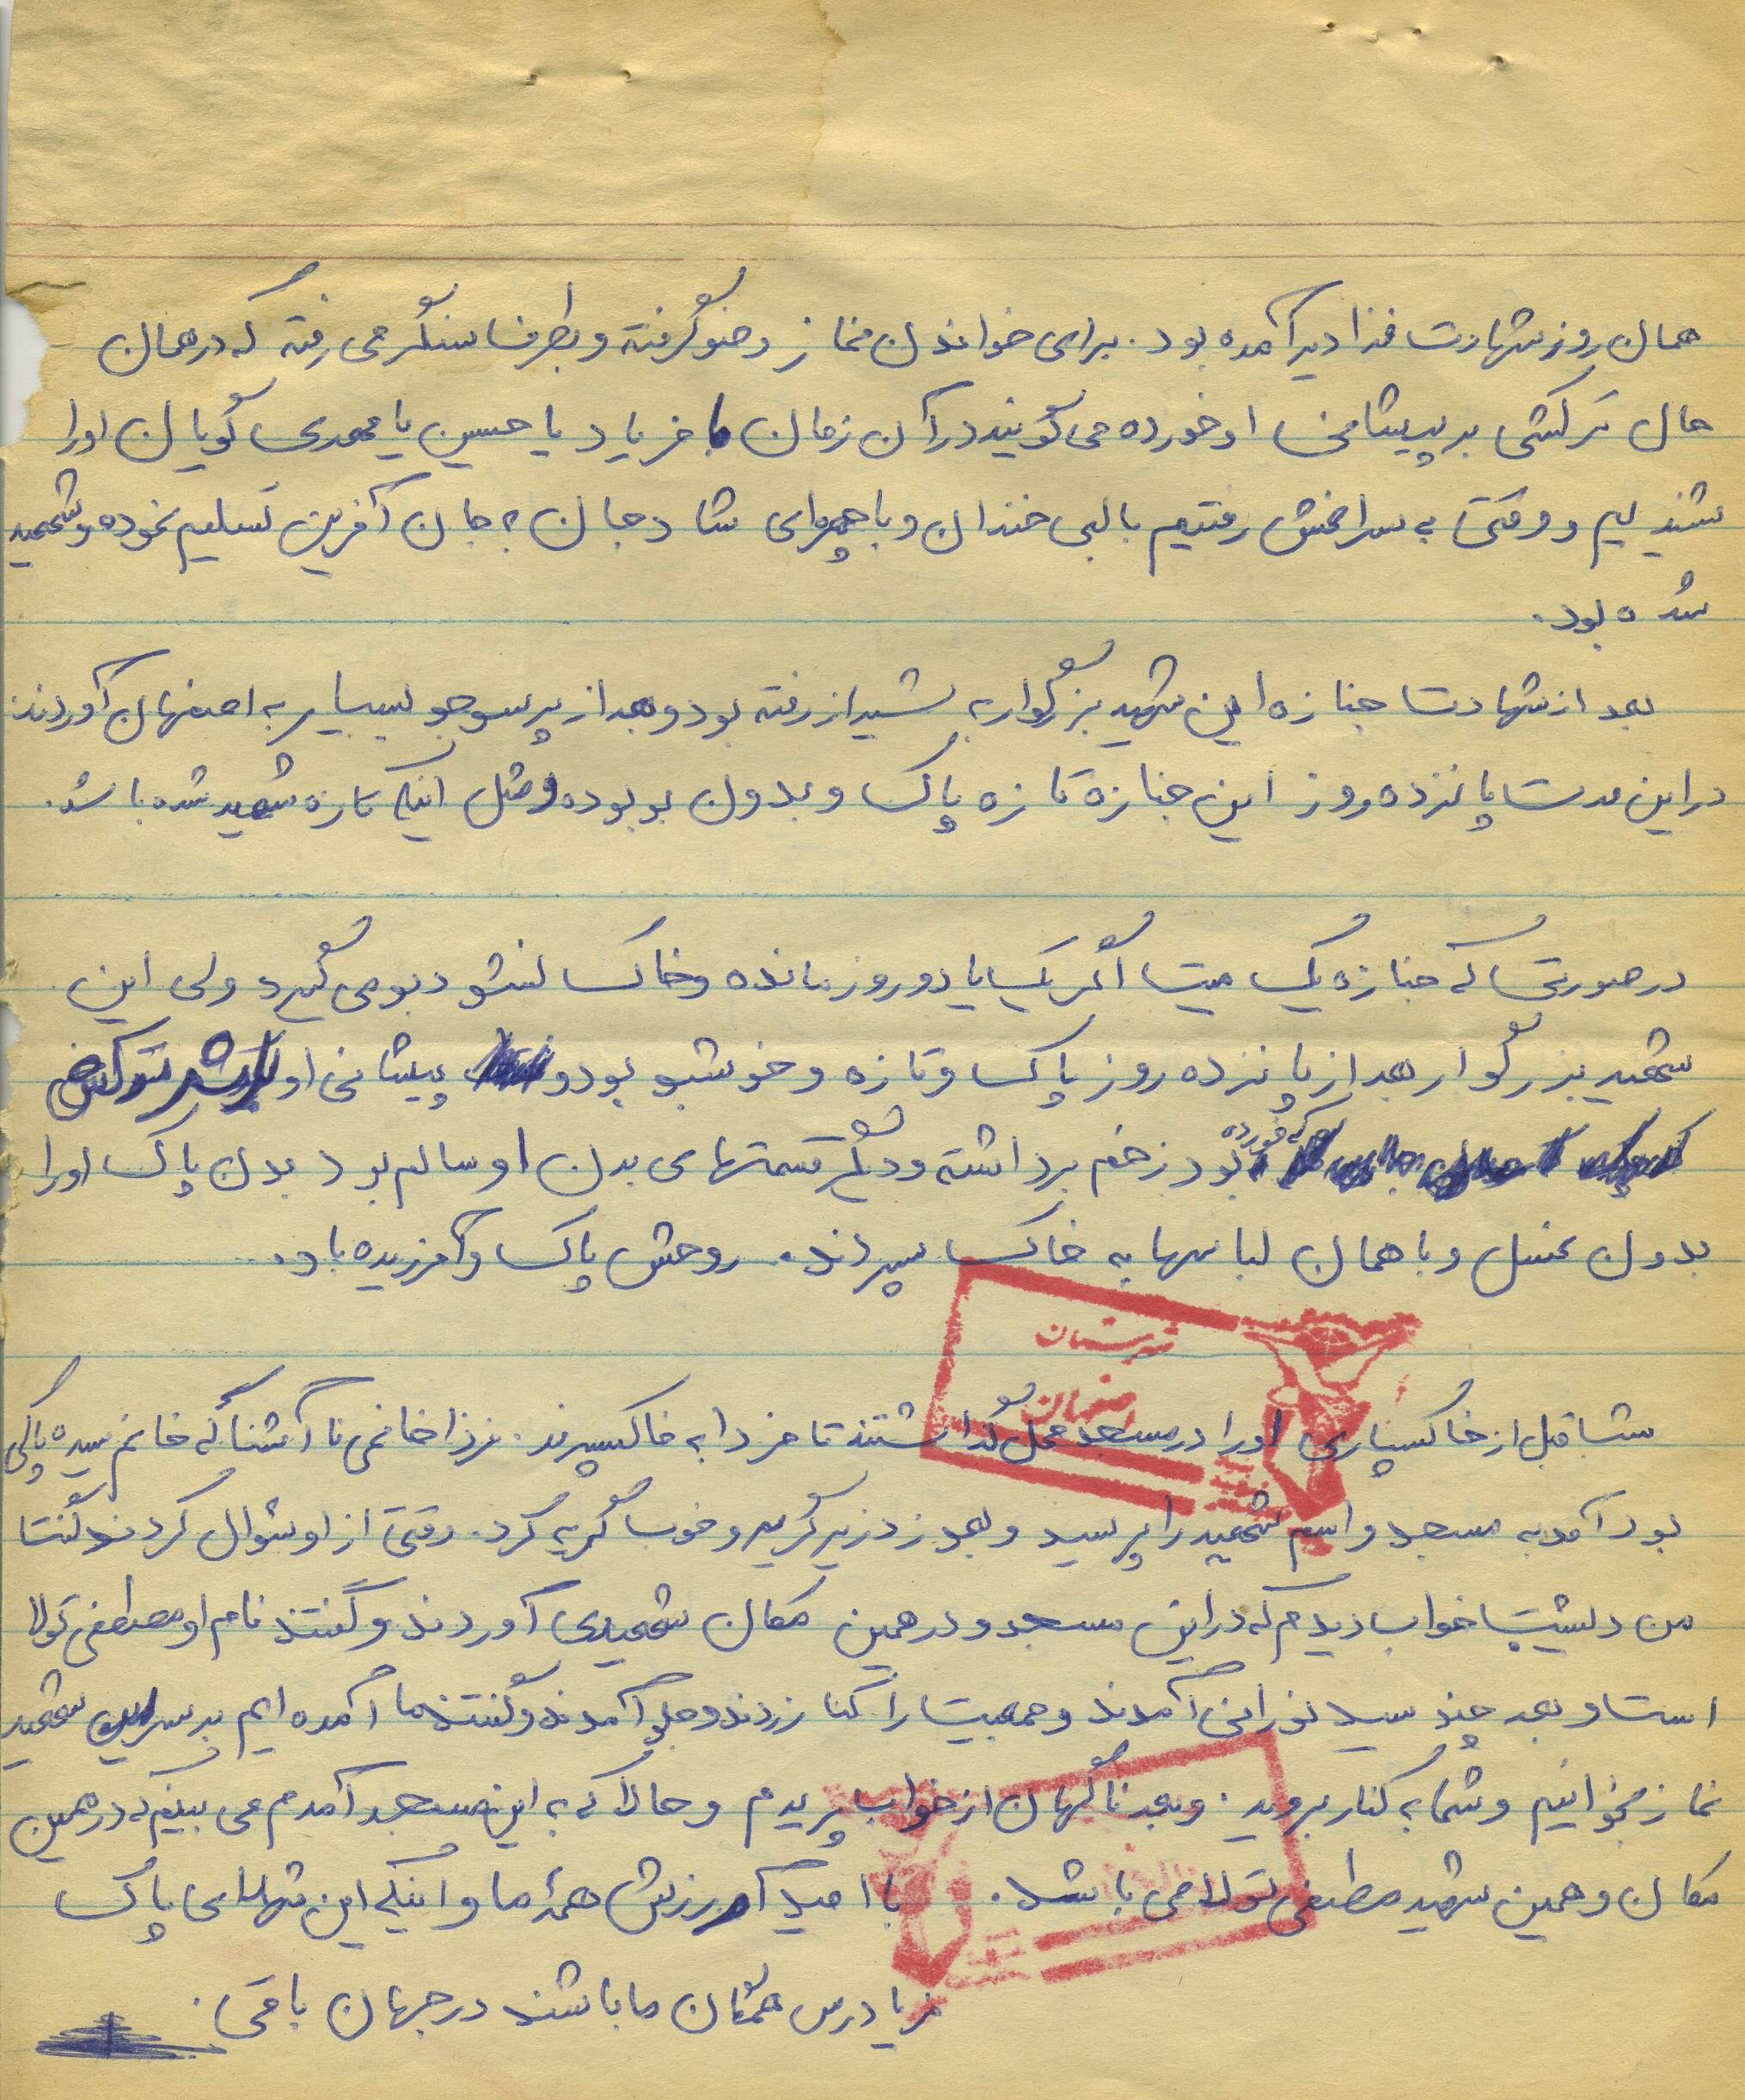 همان روز شهادت غذا دیر آمده بود. برای خواندن نماز وضو گرفته و بطرف سنگر می رفته که در همان
حال ترکشی به پیشانی او خورده می گویند در آن زمان ما فریاد یا حسین یا مهدی گویان او را
شنیدیم و وقتی به سراغش رفتیم با لبی خندان و با چهره ای شاد جان به جان آفرین تسلیم نموده و شهید
شده بود.
بعد از شهادت جنازه این شهید بزرگوار به شیراز رفته بود و بعد از پرسوجو بسیار به اصفهان آوردند
در این مدت پانزده روز این جنازه تازه پاک و بدون بو بوده و مثل اینکه تازه شهید شده باشد.
در صورتی که جنازه یک میت اگر یک یا دو روز مانده و خاک نشود بو می گیرد ولی این
شهید بزرگوار بعد از پانزده روز پاک و تازه و خوشبو بود و پیشانی او ترکش
که خورده
بود زخم برداشته و دیگر قسمتهای بدن او سالم بود بدن پاک او را
بدون غسل و با همان لباسها به خاک سپردند. روحش پاک و آمرزیده باد.
شهرستان
اصفهان
شب قبل از خاکسپاری او را در مسجد محل گذاشتند تا فردا به خاکسپرند. فردا خانمی نا آشنا که خانم سیده پاکی
بود آمد به مسجد و اسم شهید را پرسید و بعد زد زیر گریه و خوب گریه کرد. وقتی از او سٔوال کردند گفت
من دیشب خواب دیدم که در این مسجد و در همین مکان شهیدی آوردند و گفتند نام او مصطفی تولا
است و بعد چند سید نورانی آمدند و جمعیت را کنار زدند و جلو آمدند و گفتند ما آمده ایم بر سر این شهید
نماز بخوانیم و شما به کنار بروید. و بعد ناگهان از خواب پریدم و حالا که به این مسجد آمدم می بینم که در همین
مکان و همین شهید مصطفی تولا می باشد. با امید آمرزش همهٔ ما و اینکه این شهدای پاک
فریادرس همگان ما باشند در جهان باقی.